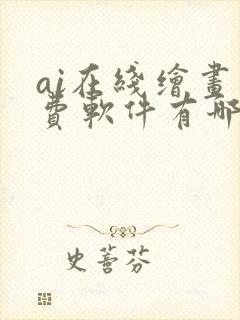 ai在綫繪畫
費軟件有哪
史蕾芬